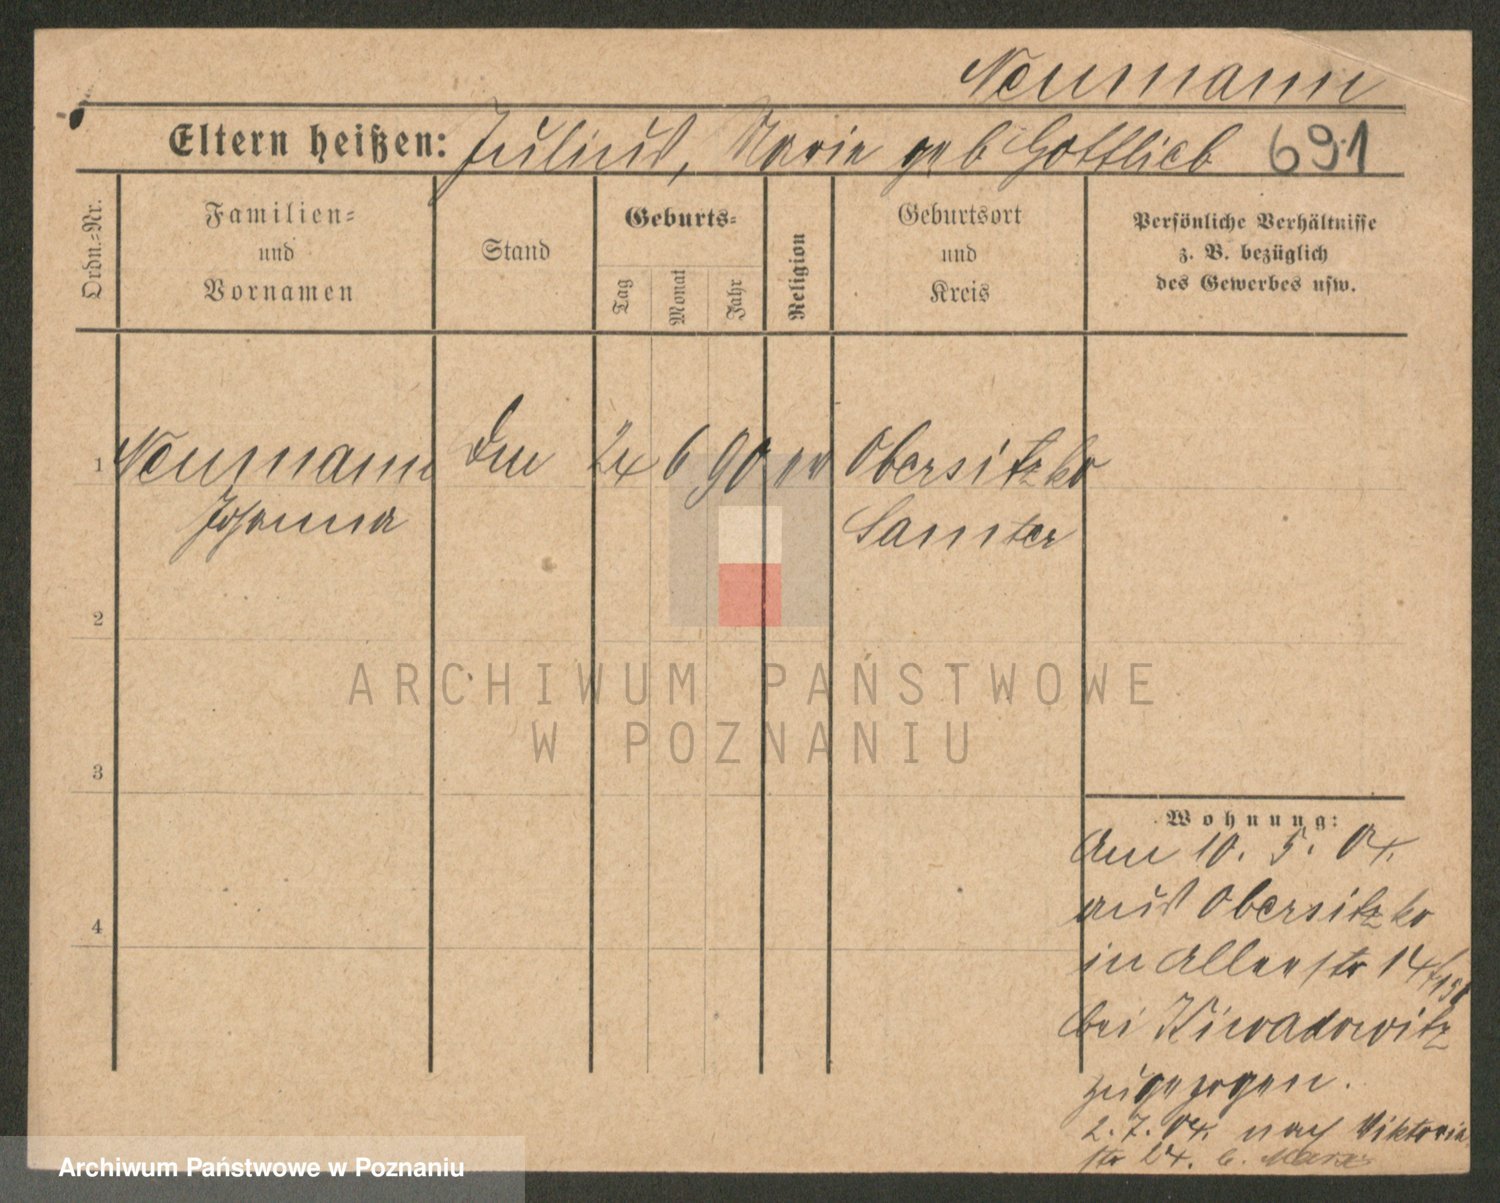 Neumann
Eltern heißen: Julius, Marie geb Gottlieb 691
Ordn.=Nr.
Familien=
und
Vornamen
Stand
Geburts=
Tag
Monat
Jahr
Religion
Geburtsort
und
Kreis
Persönliche Verhältnisse
z. B. bezüglich
des Gewerbes usw.
1 Neumann 24 6 90 ev Obersitzko
Johanna Samter
2
3
4
ARCHIWUM PAŃSTWOWE
W POZNANIU
Wohnung:
Am 10. 5. 04.
aus Obersitzko
in 14
bei
zugezogen.
2. 7. 04. nach Viktoria
str 24.
Archiwum Państwowe w Poznaniu